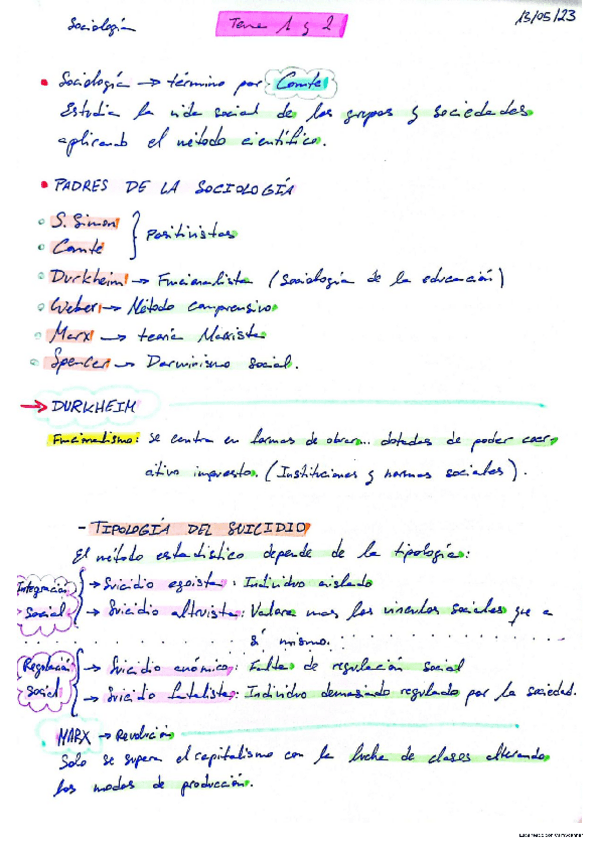 Sociología
Tema 1 y 2
13/05/23
• Sociología → término por Comte
Estudia la vida social de los grupos y sociedades
aplicando el método científico.
• PADRES DE LA SOCIOLOGÍA
S. Simon
Comte
} Positivistas
Durkheim → Funcionalista (Sociología de la educación)
Weber → Método comprensivo
Marx → teoría Marxista
Spencer → Darwinismo social.
→ DURKHEIM
Funcionalismo: se centra en formas de obrar... dotadas de poder coer
citivo impuesto. (Instituciones y normas sociales).
- TIPOLOGÍA DEL SUICIDIO
El método estadístico depende de la tipología:
Integración Social
{ → Suicidio egoista: Individuo aislado
→ Suicidio altruista: Valora mas los vinculos sociales que a
sí mismo.
Regulación Social
{ → Suicidio anómico: Falta de regulación social
→ Suicidio fatalista: Individuo demasiado regulado por la sociedad.
MARX → Revolución
Solo se supera el capitalismo con la lucha de clases alterando
los modos de producción.